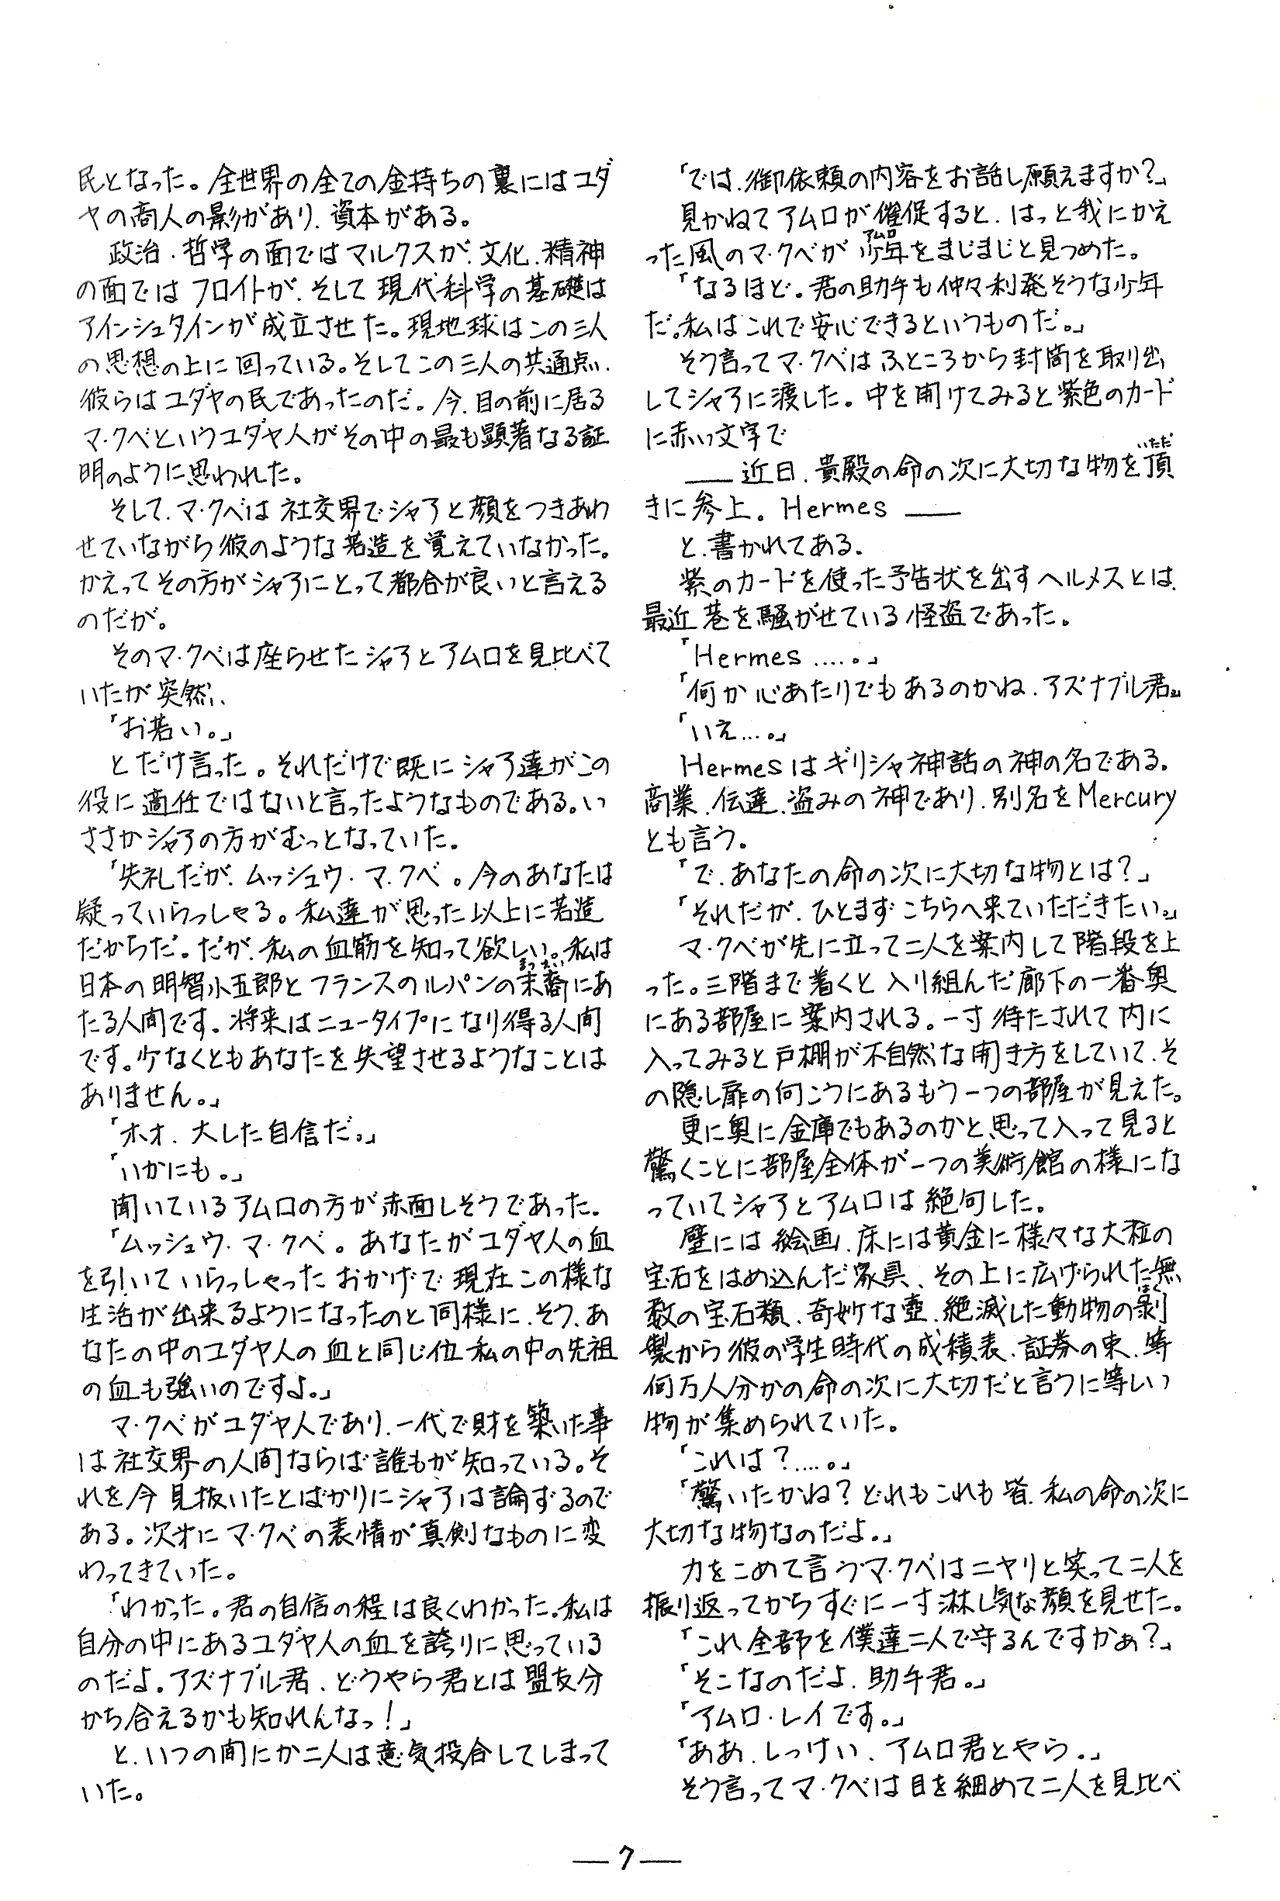 民となった。全世界の全ての金持ちの裏にはユダ
ヤの商人の影があり、資本がある。
政治・哲学の面ではマルクスが、文化、精神
の面ではフロイトが、そして現代科学の基礎は
アインシュタインが成立させた。現地球はこの三人
の思想の上に回っている。そしてこの三人の共通点、
彼らはユダヤの民であったのだ。今、目の前に居る
マ・クベというユダヤ人がその中の最も顕著なる証
明のように思われた。
そして、マ・クベは社交界でシャアと顔をつきあわ
せていながら彼のような若造を覚えていなかった。
かえってその方がシャアにとって都合が良いと言える
のだが。
そのマ・クベは座らせたシャアとアムロを見比べて
いたが突然、
「お若い。」
とだけ言った。それだけで既にシャア達がこの
役に適任ではないと言ったようなものである。い
ささかシャアの方がむっとなっていた。
「失礼だが、ムッシュウ・マ・クベ。今のあなたは
疑っていらっしゃる。私達が思った以上に若造
だからだ。だが、私の血筋を知って欲しい。私は
日本の明智小五郎とフランスのルパンの末裔にあ
たる人間です。将来はニュータイプになり得る人間
です。少なくともあなたを失望させるようなことは
ありません。」
「ホオ、大した自信だ。」
「いかにも。」
聞いているアムロの方が赤面しそうであった。
「ムッシュウ・マ・クベ。あなたがユダヤ人の血
を引いていらっしゃったおかげで現在この様な
生活が出来るようになったのと同様に、そう、あ
なたの中のユダヤ人の血と同じ位私の中の先祖
の血も強いのですよ。」
マ・クベがユダヤ人であり、一代で財を築いた事
は社交界の人間ならば誰もが知っている。そ
れを今見抜いたとばかりにシャアは論ずるので
ある。次第にマ・クベの表情が真剣なものに変
わってきていた。
「わかった。君の自信の程は良くわかった。私は
自分の中にあるユダヤ人の血を誇りに思っている
のだよ。アズナブル君、どうやら君とは盟友分
かち合えるかも知れんなっ！」
と、いつの間にか二人は意気投合してしまって
いた。
「では、御依頼の内容をお話し願えますか？」
見かねてアムロが催促すると、はっと我にかえ
った風のマ・クベが少年をまじまじと見つめた。
「なるほど。君の助手も仲々利発そうな少年
だ。私はこれで安心できるというものだ。」
そう言ってマ・クベはふところから封筒を取り出
してシャアに渡した。中を開けてみると紫色のカード
に赤い文字で
――近日、貴殿の命の次に大切な物を頂
きに参上。Hermes――
と、書かれてある。
紫のカードを使った予告状を出すヘルメスとは、
最近巷を騒がせている怪盗であった。
「Hermes……。」
「何か心あたりでもあるのかね、アズナブル君。」
「いえ…。」
Hermesはギリシャ神話の神の名である。
商業、伝達、盗みの神であり、別名をMercury
とも言う。
「で、あなたの命の次に大切な物とは？」
「それだが、ひとまずこちらへ来ていただきたい。」
マ・クベが先に立って二人を案内して階段を上
った。三階まで着くと入り組んだ廊下の一番奥
にある部屋に案内される。一寸待たされて内に
入ってみると戸棚が不自然な開き方をしていて、そ
の隠し扉の向こうにあるもう一つの部屋が見えた。
更に奥に金庫でもあるのかと思って入って見ると
驚くことに部屋全体が一つの美術館の様にな
っていてシャアとアムロは絶句した。
壁には絵画、床には黄金に様々な大粒の
宝石をはめ込んだ家具、その上に広げられた無
数の宝石類、奇妙な壺、絶滅した動物の剥
製から彼の学生時代の成績表、証券の束、等
何万人分かの命の次に大切だと言うに等しい
物が集められていた。
「これは？……。」
「驚いたかね？どれもこれも皆、私の命の次に
大切な物なのだよ。」
力をこめて言うマ・クベはニヤリと笑って二人を
振り返ってからすぐに一寸淋し気な顔を見せた。
「これ全部を僕達二人で守るんですかぁ？」
「そこなのだよ、助手君。」
「アムロ・レイです。」
「ああ、しっけい、アムロ君とやら。」
そう言ってマ・クベは目を細めて二人を見比べ
―7―